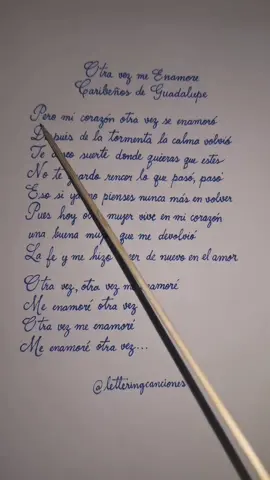 Otra vez me Enamore
Caribeños de Guadalupe
Pero mi corazón otra vez se enamoró
Después de la tormenta la calma volvió
Te deseo suerte donde quieras que estes
No te guardo rencor lo que pasó, pasó
Eso si ya no pienses nunca más en volver
Pues hoy otra mujer vive en mi corazón
una buena mujer que me devolvió
La fe y me hizo creer de nuevo en el amor
Otra vez, otra vez me enamoré
Me enamoré otra vez
Otra vez me enamoré
Me enamoré otra vez...
@letteringcanciones